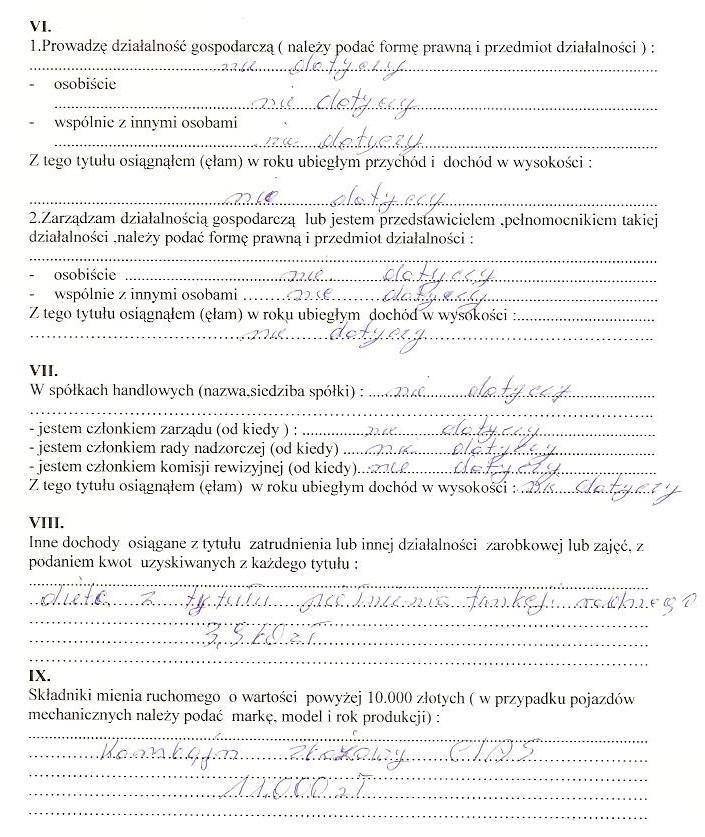 VI.
1.Prowadzę działalność gospodarczą ( należy podać formę prawną i przedmiot działalności ) :
nie dotyczy
- osobiście
nie dotyczy
- wspólnie z innymi osobami
nie dotyczy
Z tego tytułu osiągnąłem (ęłam) w roku ubiegłym przychód i dochód w wysokości :
nie dotyczy
2.Zarządzam działalnością gospodarczą lub jestem przedstawicielem ,pełnomocnikiem takiej
działalności ,należy podać formę prawną i przedmiot działalności :
- osobiście nie dotyczy
- wspólnie z innymi osobami nie dotyczy
Z tego tytułu osiągnąłem (ęłam) w roku ubiegłym dochód w wysokości :
nie dotyczy
VII.
W spółkach handlowych (nazwa,siedziba spółki) : nie dotyczy
- jestem członkiem zarządu (od kiedy ) : nie dotyczy
- jestem członkiem rady nadzorczej (od kiedy) nie dotyczy
- jestem członkiem komisji rewizyjnej (od kiedy) nie dotyczy
Z tego tytułu osiągnąłem (ęłam) w roku ubiegłym dochód w wysokości : nie dotyczy
VIII.
Inne dochody osiągane z tytułu zatrudnienia lub innej działalności zarobkowej lub zajęć, z
podaniem kwot uzyskiwanych z każdego tytułu :
dieta z tytułu pełnienia funkcji radnego
zł
IX.
Składniki mienia ruchomego o wartości powyżej 10.000 złotych ( w przypadku pojazdów
mechanicznych należy podać markę, model i rok produkcji) :
Kombajn zbożowy CLAS
11.000 zł